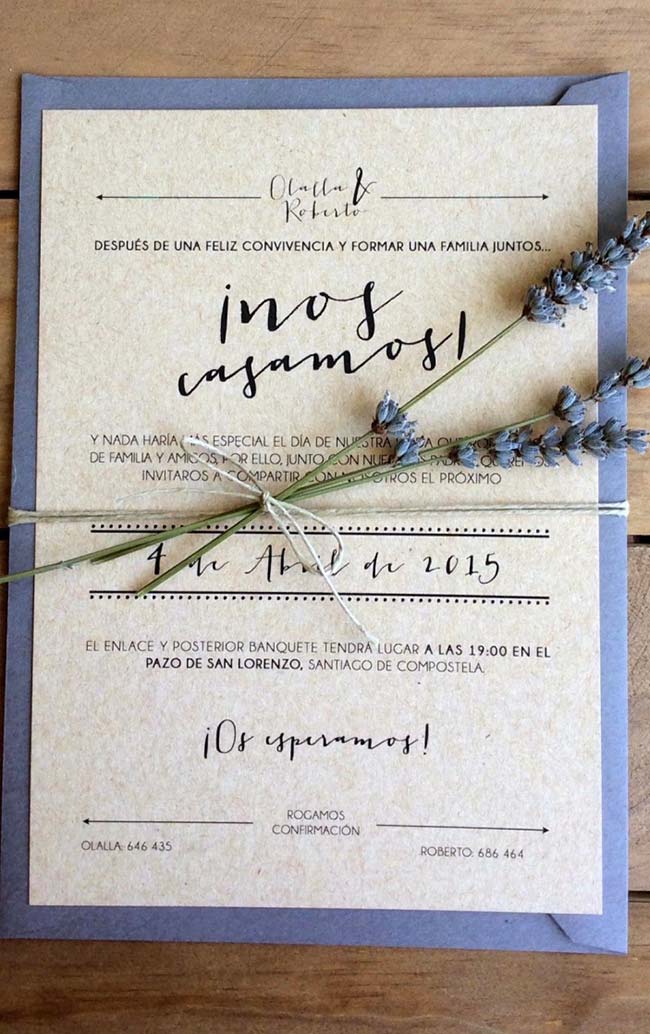 Olalla &
Roberto
DESPUÉS DE UNA FELIZ CONVIVENCIA Y FORMAR UNA FAMILIA JUNTOS...
¡nos
casamos!
Y NADA HARÍA MÁS ESPECIAL EL DÍA DE NUESTRA
DE FAMILIA Y AMIGOS, POR ELLO, JUNTO CON NUESTROS PADRES, QUEREMOS
INVITAROS A COMPARTIR CON NOSOTROS EL PRÓXIMO
4 de Abril de 2015
EL ENLACE Y POSTERIOR BANQUETE TENDRÁ LUGAR A LAS 19:00 EN EL
PAZO DE SAN LORENZO, SANTIAGO DE COMPOSTELA.
¡Os esperamos!
ROGAMOS
CONFIRMACIÓN
OLALLA: 646 435
ROBERTO: 686 464